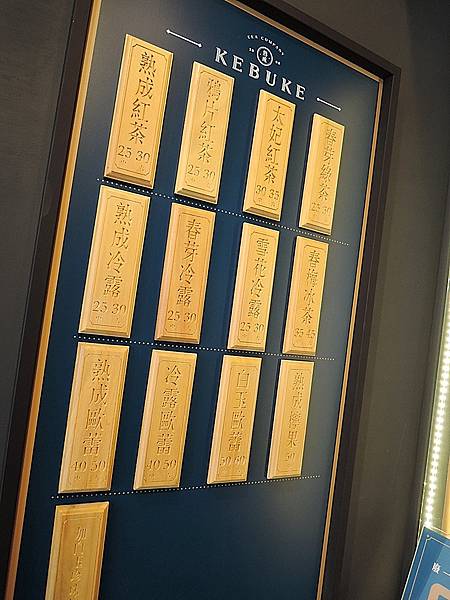 TEA COMPANY
KEBUKE
熟成紅茶
25 30
鴉片紅茶
25 30
太妃紅茶
30 35
春芽綠茶
25 30
熟成冷露
25 30
春芽冷露
25 30
雪花冷露
25 30
春梅冰茶
35 45
熟成歐蕾
40 50
冷露歐蕾
40 50
白玉歐蕾
50 60
熟成檸果
50